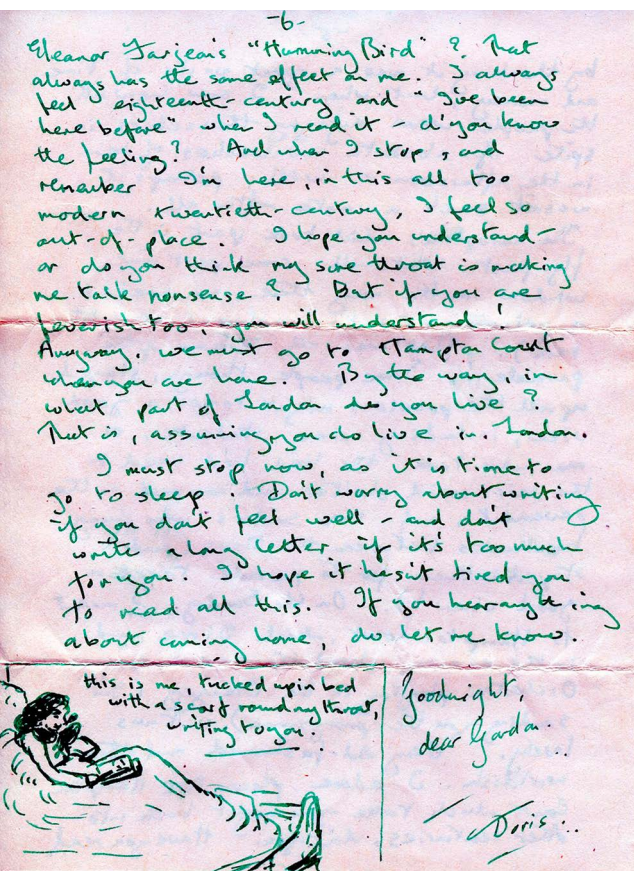 -6-
Eleanor Farjeon's "Humming Bird" ? That
always has the same effect on me. I always
feel eighteenth-century and "I've been
here before" when I read it - d'you know
the feeling? And when I stop, and
remember I'm here, in this all too
modern twentieth-century, I feel so
out-of-place. I hope you understand -
or do you think my sore throat is making
me talk nonsense? But if you are
feverish too, you will understand!
Anyway, we must go to Hampton Court
when you are home. By the way, in
what part of London do you live?
That is, assuming you do live in London.
I must stop now, as it is time to
go to sleep. Don't worry about writing
if you don't feel well - and don't
write a long letter if it's too much
for you. I hope it hasn't tired you
to read all this. If you hear anything
about coming home, do let me know.
this is me, tucked up in bed
with a scarf round my throat,
writing to you.
Goodnight,
dear Gordon...
Doris...